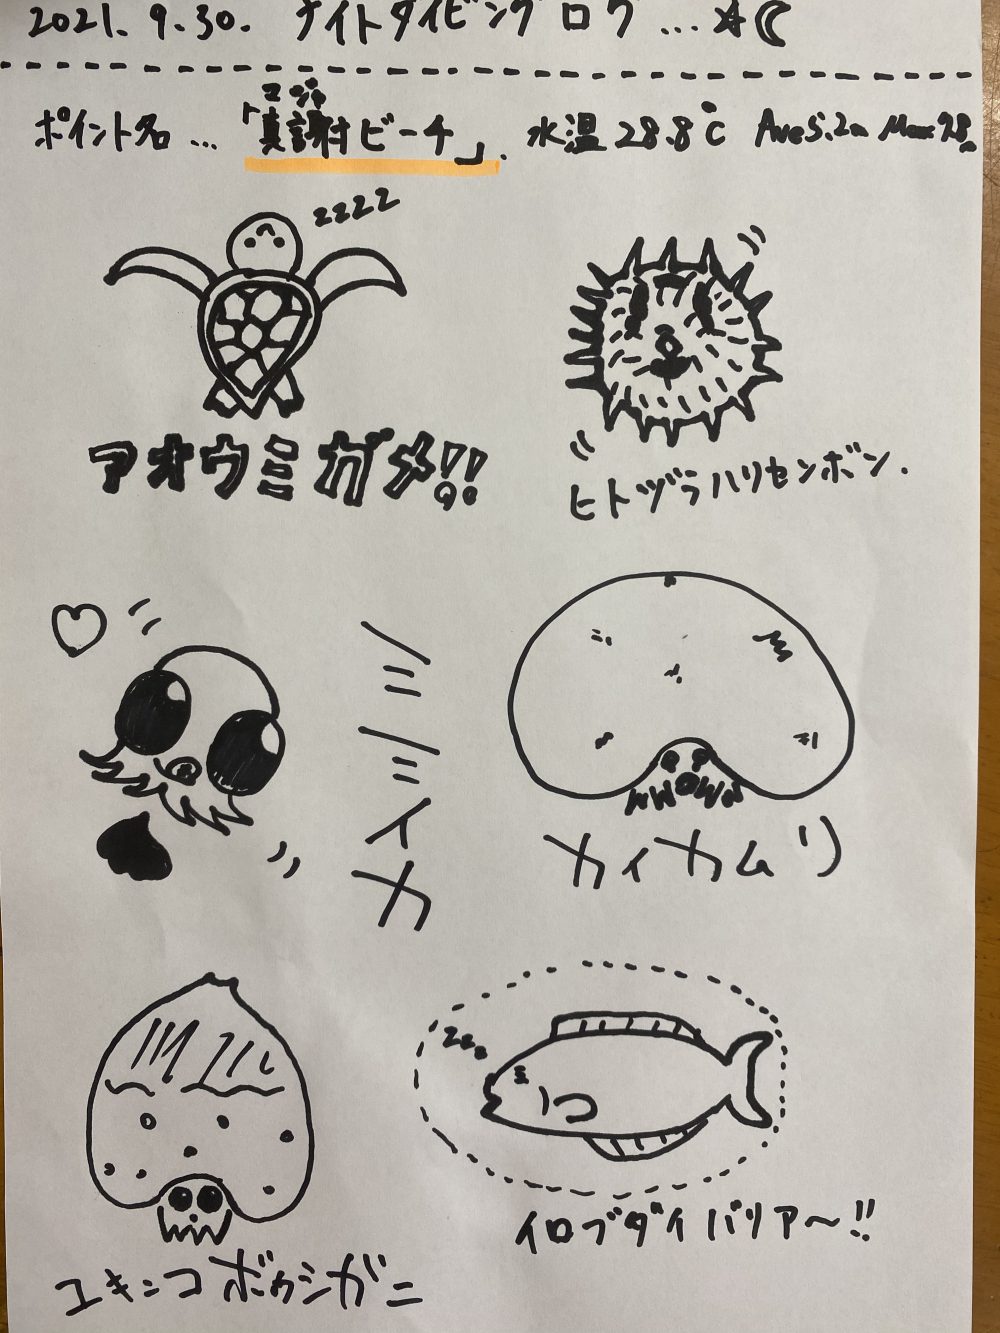 2021. 9.30. ナイトダイビングログ...☆☾
ポイント名... 「真謝村ビーチ」. 水温 28.8℃ Ave5.2m Max9.8m
マジャ
zzzz
アオウミガメ!!
ヒトヅラハリセンボン.
ミミイカ
カイカムリ
zzz
イロブダイバリア〜!!
ユキンコボウシガニ